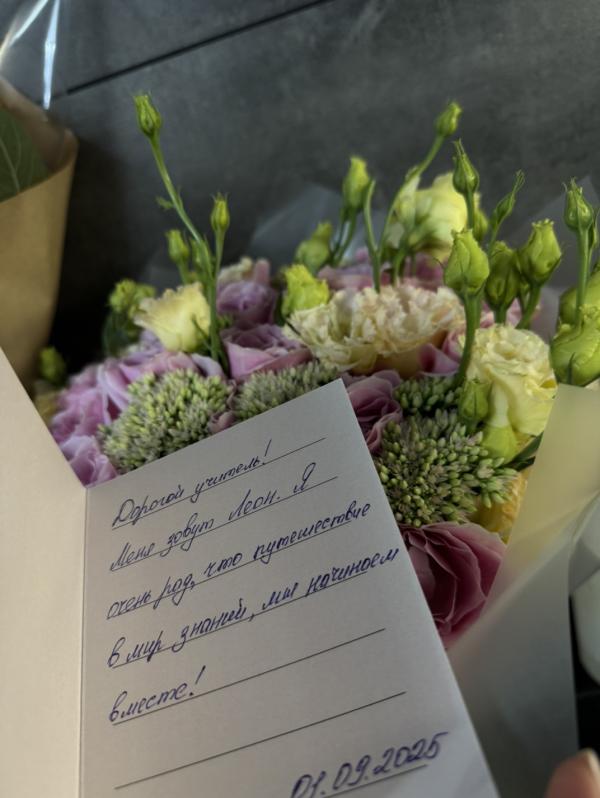 Дорогой учитель!
Меня зовут Леон. Я
очень рад, что путешествие
в мир знаний, мы начинаем
вместе!
01.09.2025